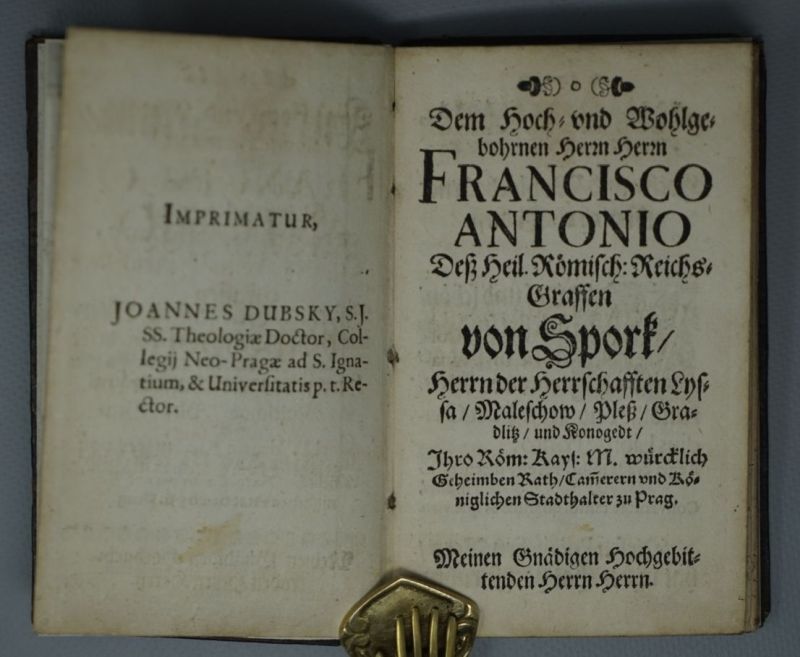 IMPRIMATUR,
JOANNES DUBSKY, S.J.
SS. Theologiæ Doctor, Col-
legij Neo-Pragæ ad S. Igna-
tium, & Universitatis p. t. Re-
ctor.
Dem Hoch- vnd Wohlge-
bohrnen Herrn Herrn
FRANCISCO
ANTONIO
Deß Heil. Römisch: Reichs-
Graffen
von Spork/
Herrn der Herrschafften Lys-
sa / Maleschow / Pleß / Gra-
dlitz / und Konogedt /
Ihro Röm: Kays: M. würcklich
Geheimben Rath/Cam̃erern vnd Kö-
niglichen Stadthalter zu Prag.
Meinen Gnädigen Hochgebit-
tenden Herrn Herrn.